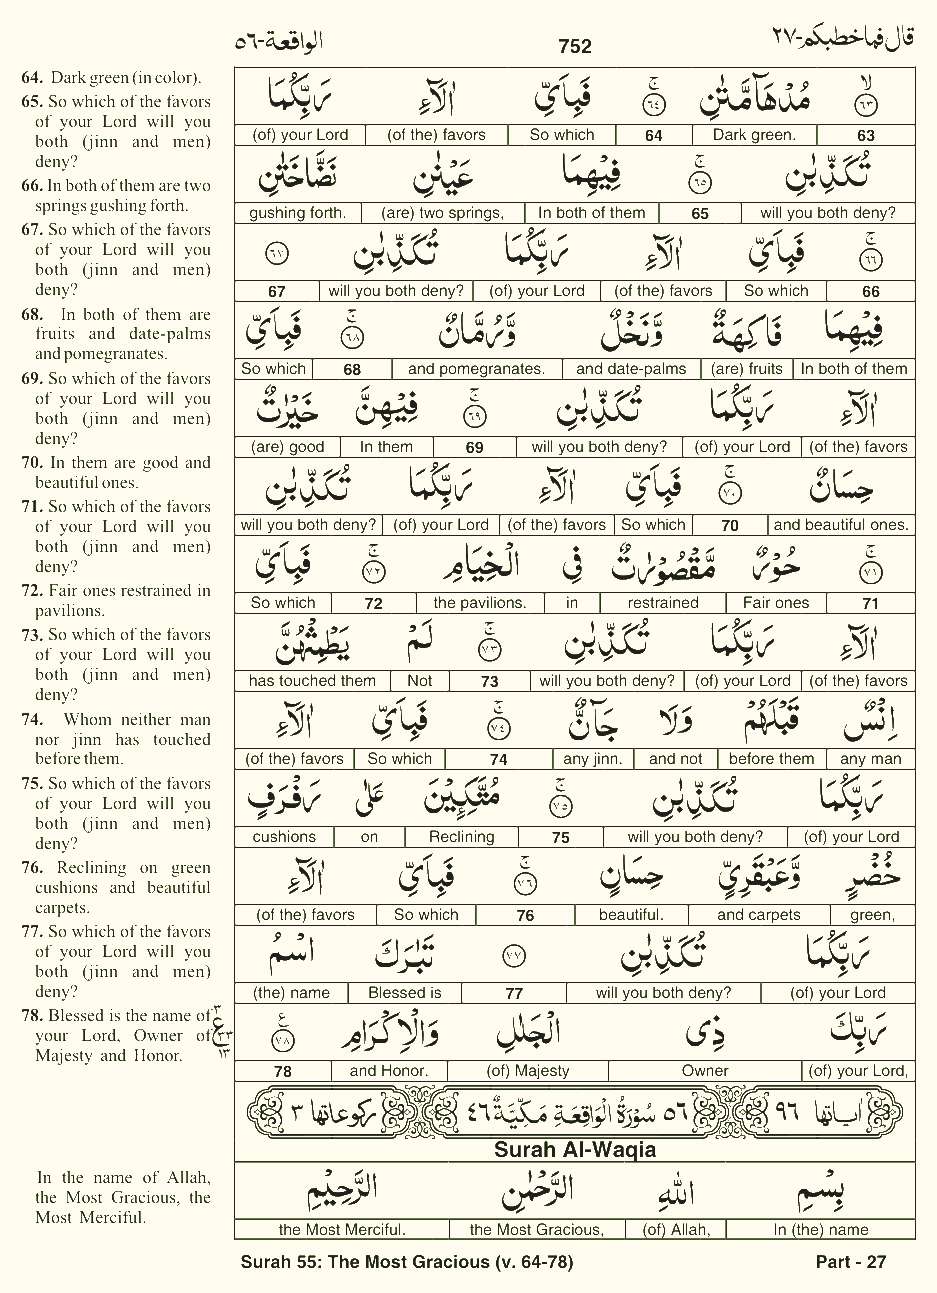 الواقعة-٥٦
752
قال فماخطبكم-٢٧
64. Dark green (in color).
65. So which of the favors
of your Lord will you
both (jinn and men)
deny?
66. In both of them are two
springs gushing forth.
67. So which of the favors
of your Lord will you
both (jinn and men)
deny?
68. In both of them are
fruits and date-palms
and pomegranates.
69. So which of the favors
of your Lord will you
both (jinn and men)
deny?
70. In them are good and
beautiful ones.
71. So which of the favors
of your Lord will you
both (jinn and men)
deny?
72. Fair ones restrained in
pavilions.
73. So which of the favors
of your Lord will you
both (jinn and men)
deny?
74. Whom neither man
nor jinn has touched
before them.
75. So which of the favors
of your Lord will you
both (jinn and men)
deny?
76. Reclining on green
cushions and beautiful
carpets.
77. So which of the favors
of your Lord will you
both (jinn and men)
deny?
78. Blessed is the name of
your Lord, Owner of
Majesty and Honor.
٣
ع
٣٣
١٣
In the name of Allah,
the Most Gracious, the
Most Merciful.
لا ٦٣ مُدْهَآمَّتٰنِ ج ٦٤ فَبِاَيِّ اٰلَآءِ رَبِّكُمَا
(of) your Lord (of the) favors So which 64 Dark green. 63
تُكَذِّبٰنِ ج ٦٥ فِيْهِمَا عَيْنٰنِ نَضَّاخَتٰنِ
gushing forth. (are) two springs, In both of them 65 will you both deny?
ج ٦٦ فَبِاَيِّ اٰلَآءِ رَبِّكُمَا تُكَذِّبٰنِ ٦٧
67 will you both deny? (of) your Lord (of the) favors So which 66
فِيْهِمَا فَاكِهَةٌ وَّنَخْلٌ وَّرُمَّانٌ ج ٦٨ فَبِاَيِّ
So which 68 and pomegranates. and date-palms (are) fruits In both of them
اٰلَآءِ رَبِّكُمَا تُكَذِّبٰنِ ج ٦٩ فِيْهِنَّ خَيْرٰتٌ
(are) good In them 69 will you both deny? (of) your Lord (of the) favors
حِسَانٌ ج ٧٠ فَبِاَيِّ اٰلَآءِ رَبِّكُمَا تُكَذِّبٰنِ
will you both deny? (of) your Lord (of the) favors So which 70 and beautiful ones.
ج ٧١ حُوْرٌ مَّقْصُوْرٰتٌ فِى الْخِيَامِ ج ٧٢ فَبِاَيِّ
So which 72 the pavilions. in restrained Fair ones 71
اٰلَآءِ رَبِّكُمَا تُكَذِّبٰنِ ج ٧٣ لَمْ يَطْمِثْهُنَّ
has touched them Not 73 will you both deny? (of) your Lord (of the) favors
اِنْسٌ قَبْلَهُمْ وَلَا جَآنٌّ ج ٧٤ فَبِاَيِّ اٰلَآءِ
(of the) favors So which 74 any jinn. and not before them any man
رَبِّكُمَا تُكَذِّبٰنِ ج ٧٥ مُتَّكِـِٕيْنَ عَلٰى رَفْرَفٍ
cushions on Reclining 75 will you both deny? (of) your Lord
خُضْرٍ وَّعَبْقَرِيٍّ حِسَانٍ ج ٧٦ فَبِاَيِّ اٰلَآءِ
(of the) favors So which 76 beautiful. and carpets green,
رَبِّكُمَا تُكَذِّبٰنِ ٧٧ تَبٰرَكَ اسْمُ
(the) name Blessed is 77 will you both deny? (of) your Lord
رَبِّكَ ذِى الْجَلٰلِ وَالْاِكْرَامِ ع ٧٨
78 and Honor. (of) Majesty Owner (of) your Lord,
اٰياتها ٩٦ ٥٦ سُوْرَةُ الْوَاقِعَةِ مَكِّيَّةٌ ٤٦ ركوعاتها ٣
Surah Al-Waqia
بِسْمِ اللّٰهِ الرَّحْمٰنِ الرَّحِيْمِ
the Most Merciful. the Most Gracious, (of) Allah, In (the) name
Surah 55: The Most Gracious (v. 64-78) Part - 27